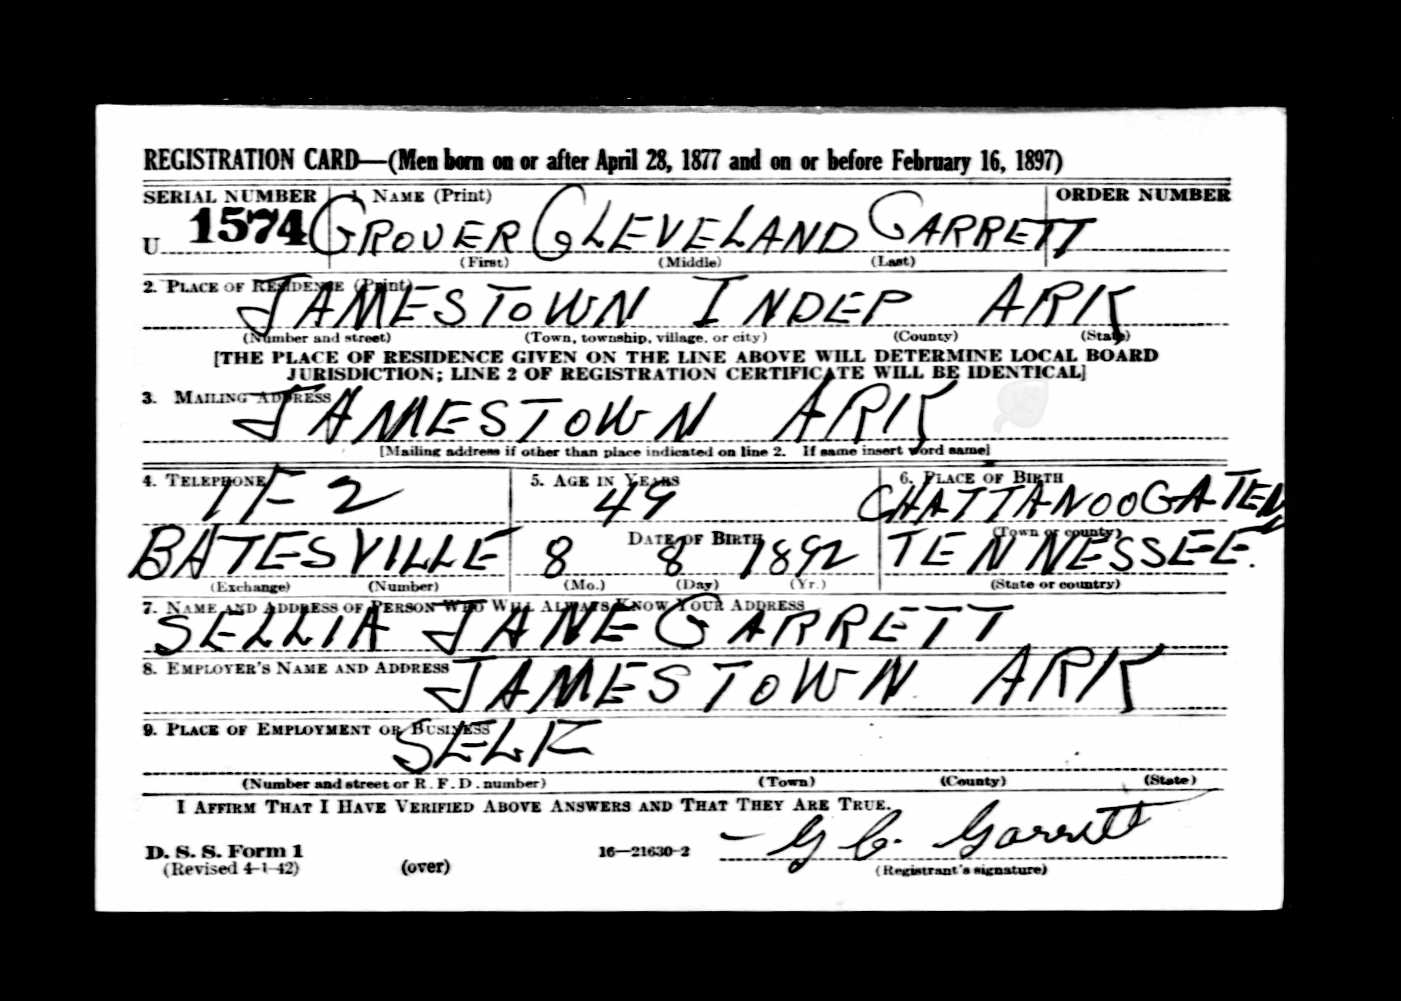 REGISTRATION CARD—(Men born on or after April 28, 1877 and on or before February 16, 1897)
SERIAL NUMBER 1. NAME (Print) ORDER NUMBER
U 1574 GROVER CLEVELAND GARRETT
(First) (Middle) (Last)
2. PLACE OF RESIDENCE (Print)
JAMESTOWN INDEP ARK
(Number and street) (Town, township, village, or city) (County) (State)
[THE PLACE OF RESIDENCE GIVEN ON THE LINE ABOVE WILL DETERMINE LOCAL BOARD
JURISDICTION; LINE 2 OF REGISTRATION CERTIFICATE WILL BE IDENTICAL]
3. MAILING ADDRESS
JAMESTOWN ARK
[Mailing address if other than place indicated on line 2. If same insert word same]
4. TELEPHONE 5. AGE IN YEARS 6. PLACE OF BIRTH
1F2 49 CHATTANOOGA TEN
DATE OF BIRTH (Town or county)
BATESVILLE 8 8 1892 TENNESSEE.
(Exchange) (Number) (Mo.) (Day) (Yr.) (State or country)
7. NAME AND ADDRESS OF PERSON WHO WILL ALWAYS KNOW YOUR ADDRESS
SELLIA JANE GARRETT
8. EMPLOYER'S NAME AND ADDRESS
JAMESTOWN ARK
9. PLACE OF EMPLOYMENT OR BUSINESS
SELF
(Number and street or R. F. D. number) (Town) (County) (State)
I AFFIRM THAT I HAVE VERIFIED ABOVE ANSWERS AND THAT THEY ARE TRUE.
G C. Garrett
D. S. S. Form 1
(Revised 4-1-42) (over) 16—21630-2 (Registrant's signature)